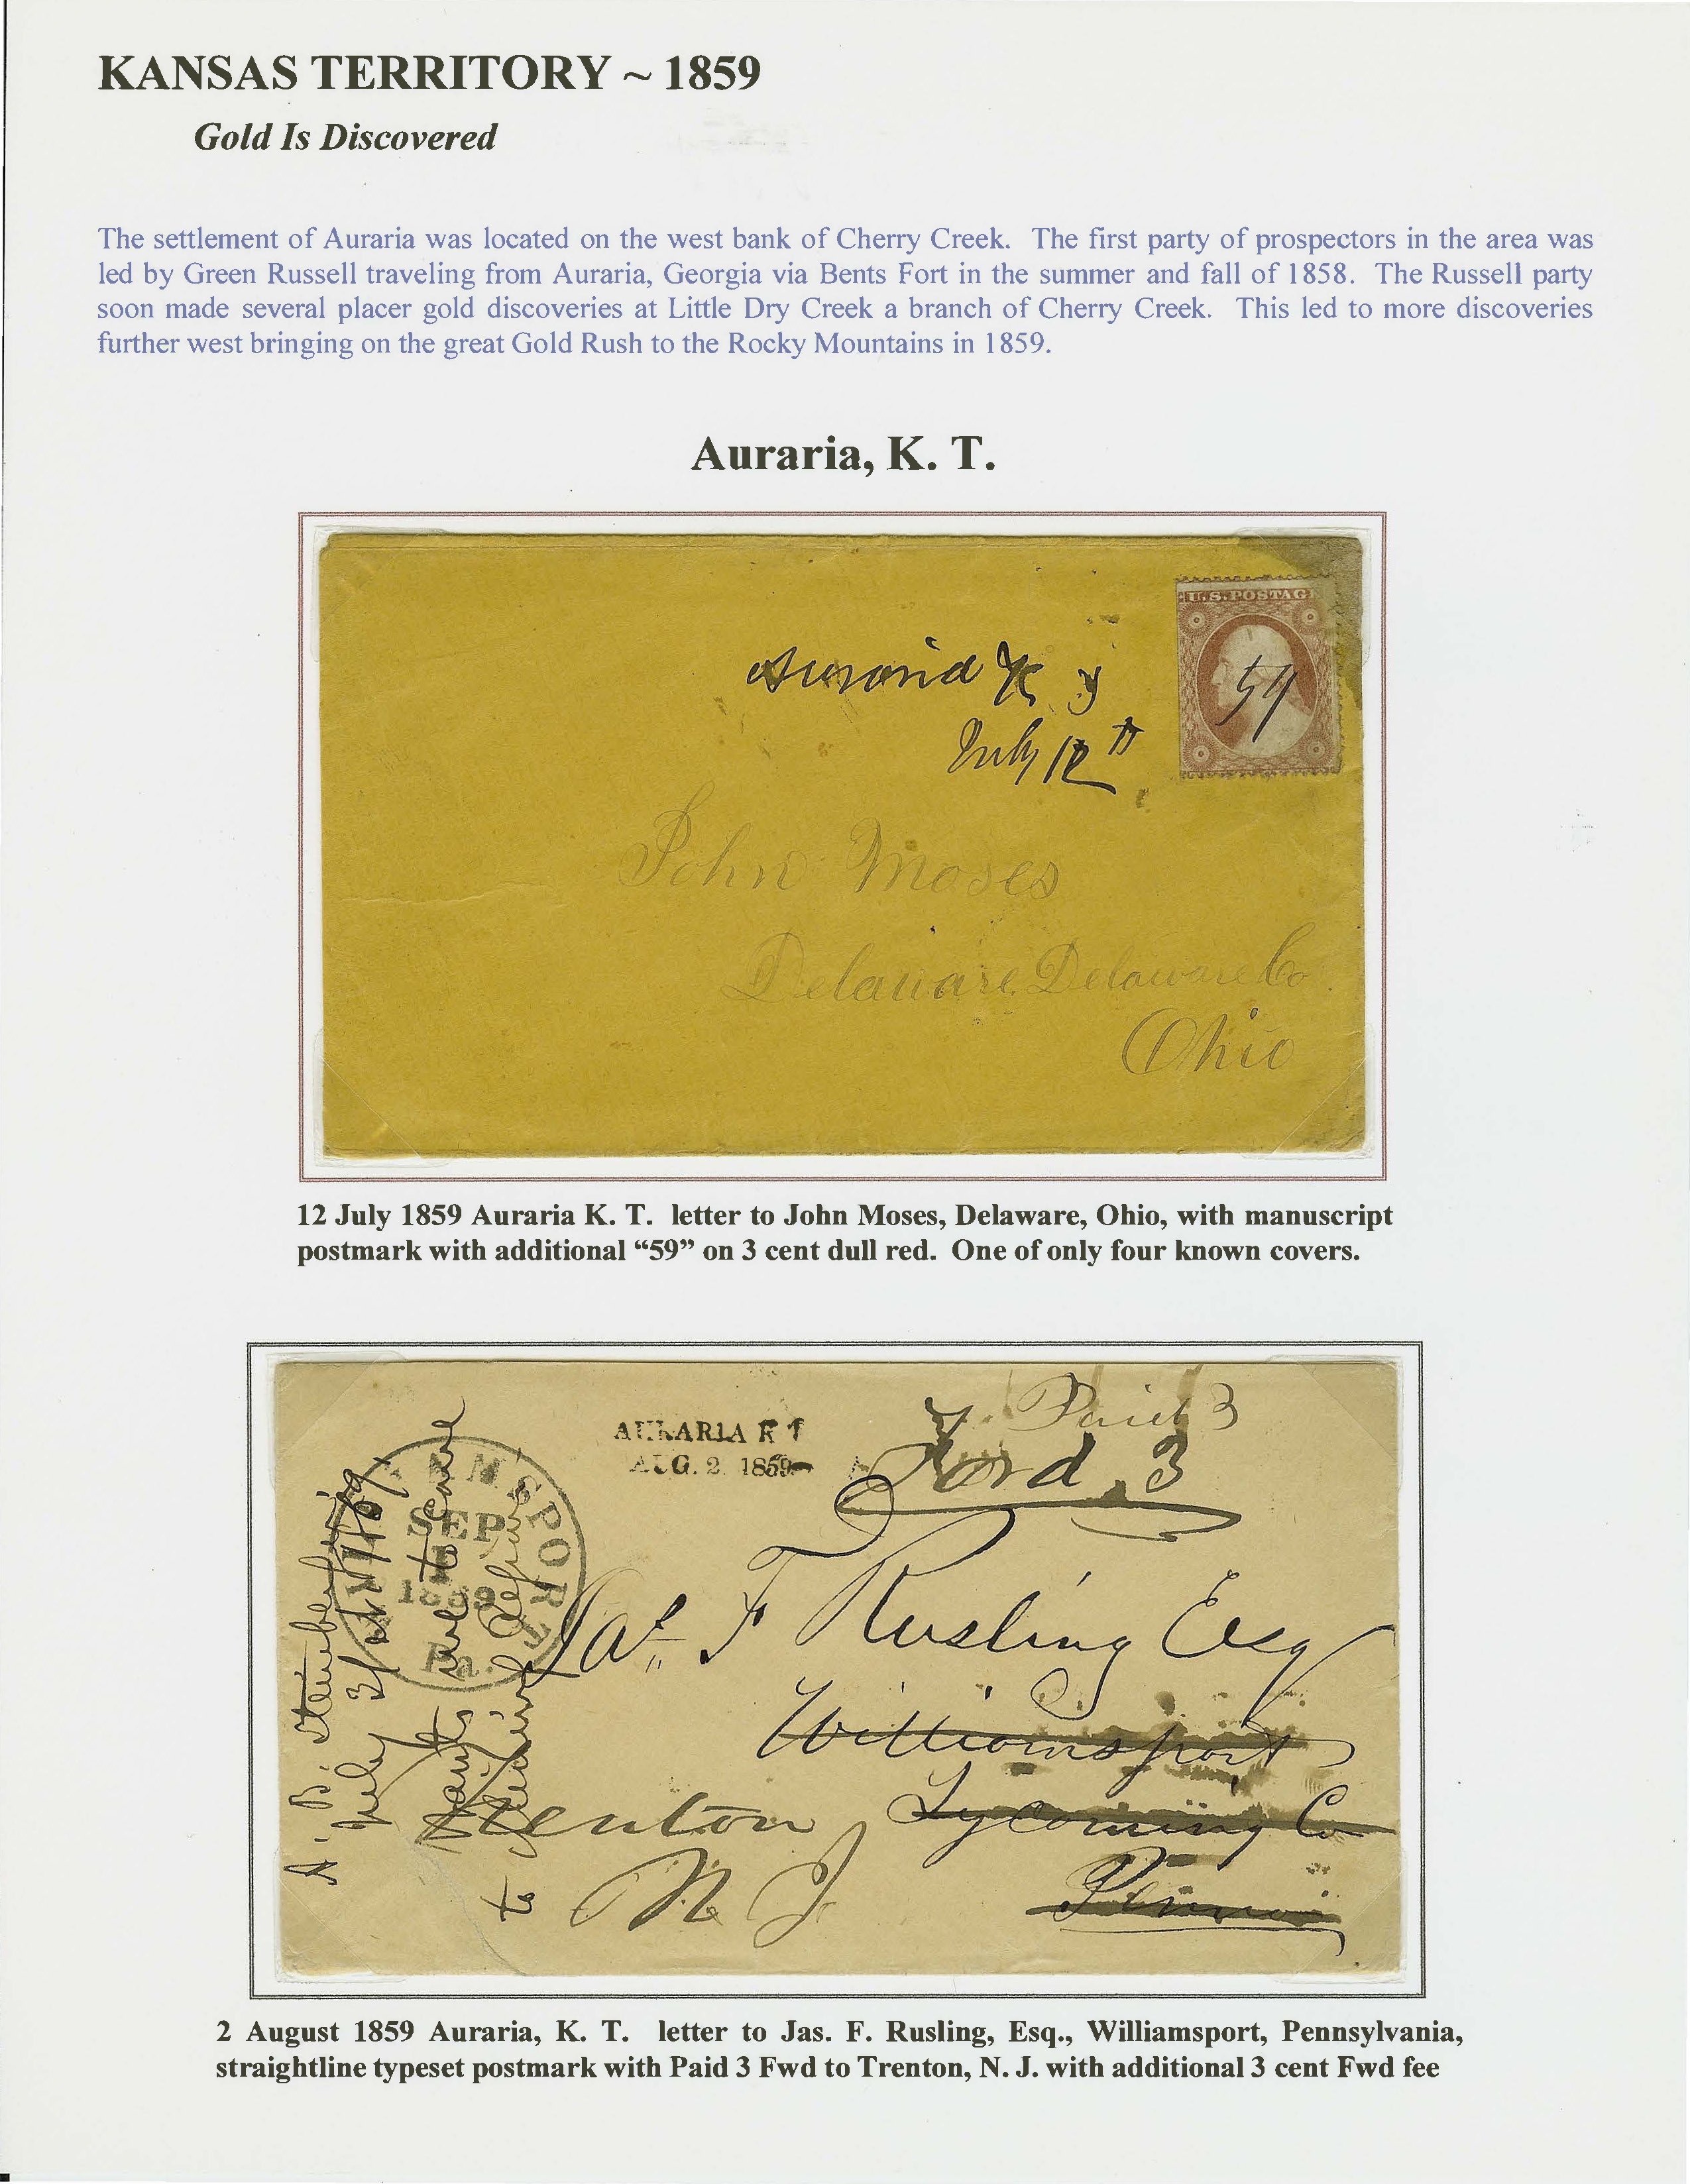 KANSAS TERRITORY ~ 1859
Gold Is Discovered
The settlement of Auraria was located on the west bank of Cherry Creek. The first party of prospectors in the area was
led by Green Russell traveling from Auraria, Georgia via Bents Fort in the summer and fall of 1858. The Russell party
soon made several placer gold discoveries at Little Dry Creek a branch of Cherry Creek. This led to more discoveries
further west bringing on the great Gold Rush to the Rocky Mountains in 1859.
Auraria, K. T.
U.S. POSTAG
Auraria K T
59
July 12th
John Moses
Delaware Delaware Co
Ohio
12 July 1859 Auraria K. T. letter to John Moses, Delaware, Ohio, with manuscript
postmark with additional “59” on 3 cent dull red. One of only four known covers.
Paid 3
AURARIA K T
AUG. 2. 1859
Ford 3
WILLIAMSPORT
SEP
1
1859
Pa.
A. B.
July 31st 1859
Jas. F Rusling Esq
Williamsport
Lycoming Co
Penna
Trenton
N J
2 August 1859 Auraria, K. T. letter to Jas. F. Rusling, Esq., Williamsport, Pennsylvania,
straightline typeset postmark with Paid 3 Fwd to Trenton, N. J. with additional 3 cent Fwd fee